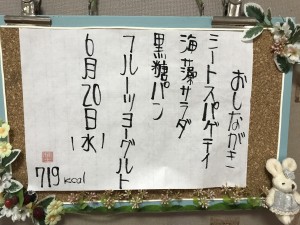 おしながき
ミートスパゲティ
海藻サラダ
黒糖パン
フルーツヨーグルト
6月20日(水)
719kcal